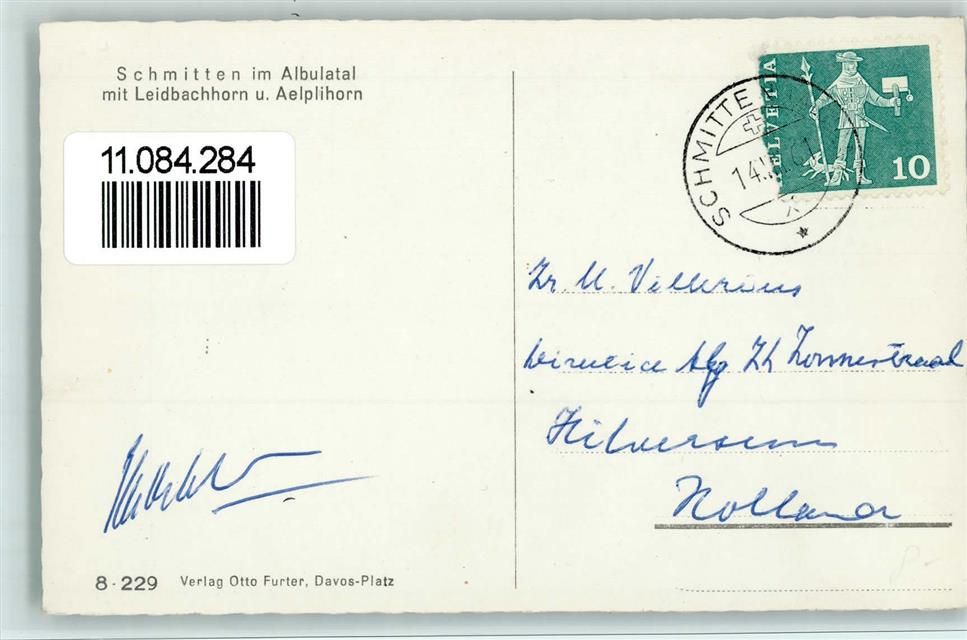 Schmitten im Albulatal
mit Leidbachhorn u. Aelplihorn
11.084.284
HELVETIA
10
SCHMITTEN
14.
Zr. M.
Directie Afg Zh Zonnestraal
Hilversum
Holland
8-229 Verlag Otto Furter, Davos-Platz